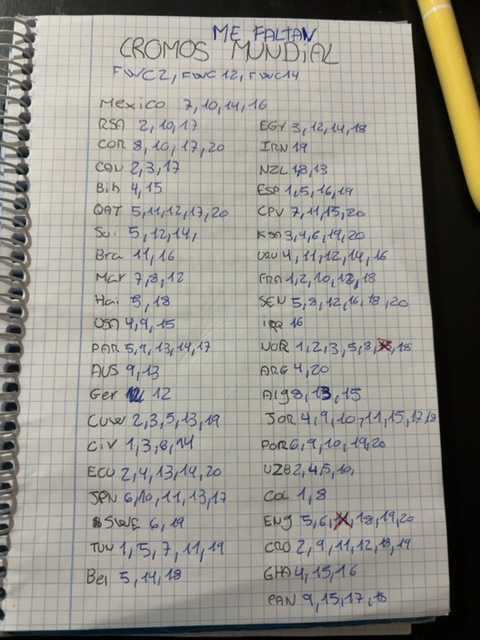 ME FALTAN
CROMOS MUNDIAL
FWC2, FWC12, FWC14
Mexico 7,10,14,16
RSA 2,10,17
COR 8,10,17,20
CAN 2,3,17
Bih 4,15
QAT 5,11,12,17,20
Sui 5,12,14,
Bra 11,16
Mar 7,8,12
Hai 5,18
USA 4,9,15
PAR 5,9,13,14,17
AUS 9,13
Ger 12
CUW 2,3,5,13,19
CiV 1,3,8,14
ECU 2,4,13,14,20
JPN 6,10,11,13,17
SWE 6,19
TUN 1,5,7,11,19
Bel 5,14,18
EGY 3,12,14,18
IRN 19
NZL 13
ESP 1,5,16,19
CPV 7,11,15,20
KSA 3,4,6,19,20
URU 4,11,12,14,16
FRA 1,2,10,12,18
SEN 5,8,12,16,18,20
IRQ 16
NOR 1,2,3,5,8,18
ARG 4,20
Alg 8,13,15
JOR 4,9,10,11,15,17,19
POR 6,9,10,19,20
UZB 2,4,5,10,
Col 1,8
ENG 5,6,18,19,20
CRO 2,9,11,12,18,19
GHA 4,15,16
PAN 9,15,17,18